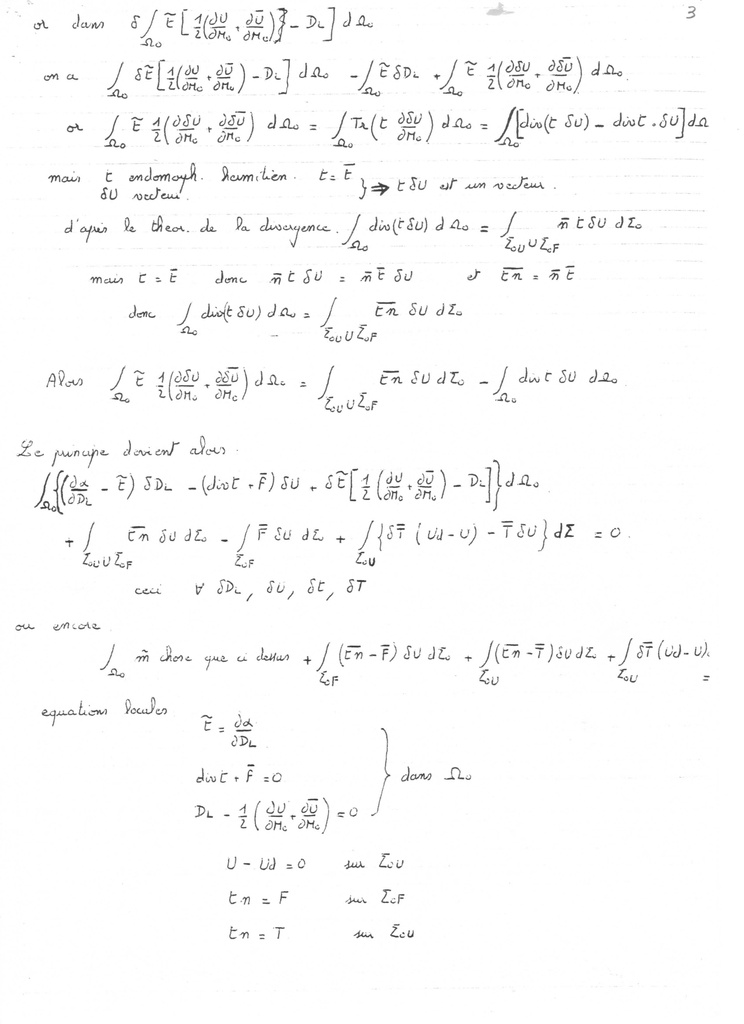 3
or dans δ∫_Ω₀ t̃ [½(∂U/∂M₀ + ∂Ū/∂M₀)} − D_L] dΩ₀
on a ∫_Ω₀ δt̃ [½(∂U/∂M₀ + ∂Ū/∂M₀) − D_L] dΩ₀ − ∫_Ω₀ t̃ δD_L + ∫_Ω₀ t̃ ½(∂δU/∂M₀ + ∂δŪ/∂M₀) dΩ₀.
or ∫_Ω₀ t̃ ½(∂δU/∂M₀ + ∂δŪ/∂M₀) dΩ₀ = ∫_Ω₀ Tr(t ∂δU/∂M₀) dΩ₀ = ∫_Ω₀ [div(t δU) − div t · δU] dΩ
mais t endomorph. hermitien. t = t̄
δU vecteur. } ⇒ t δU est un vecteur.
d'après le theor. de la divergence. ∫_Ω₀ div(t δU) dΩ₀ = ∫_Σ₀U∪Σ₀F n̄ t δU dΣ₀
mais t = t̄ donc n̄ t δU = n̄ t̄ δU et t̄n̄ = n̄ t̄
donc ∫_Ω₀ div(t δU) dΩ₀ = ∫_Σ₀U∪Σ₀F t̄n̄ δU dΣ₀
Alors ∫_Ω₀ t̃ ½(∂δU/∂M₀ + ∂δŪ/∂M₀) dΩ₀ = ∫_Σ₀U∪Σ₀F t̄n̄ δU dΣ₀ − ∫_Ω₀ div t δU dΩ₀.
Le principe devient alors.
∫_Ω₀ {(∂α/∂D_L − t̃) δD_L − (div t + F̄) δU + δt̃ [½(∂U/∂M₀ + ∂Ū/∂M₀) − D_L]} dΩ₀
+ ∫_Σ₀U∪Σ₀F t̄n̄ δU dΣ₀ − ∫_Σ₀F F̄ δU dΣ + ∫_Σ₀U {δT̄ (Ud − U) − T̄ δU} dΣ = 0.
ceci ∀ δD_L, δU, δt, δT
ou encore
∫_Ω₀ m̂ chose que ci dessus + ∫_Σ₀F (t̄n̄ − F̄) δU dΣ₀ + ∫_Σ₀U (t̄n̄ − T̄) δU dΣ₀ + ∫_Σ₀U δT̄ (Ud − U). =
equations locales
t̃ = ∂α/∂D_L
div t + F̄ = 0 } dans Ω₀
D_L − ½(∂U/∂M₀ + ∂Ū/∂M₀) = 0
U − Ud = 0 sur Σ₀U
tn = F sur Σ₀F
tn = T sur Σ₀U